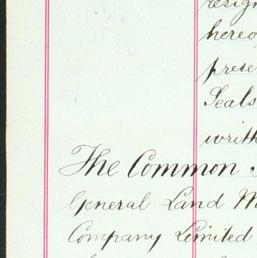 resign
hereo
prese
Seals
writt
The Common S
General Land M
Company Limited